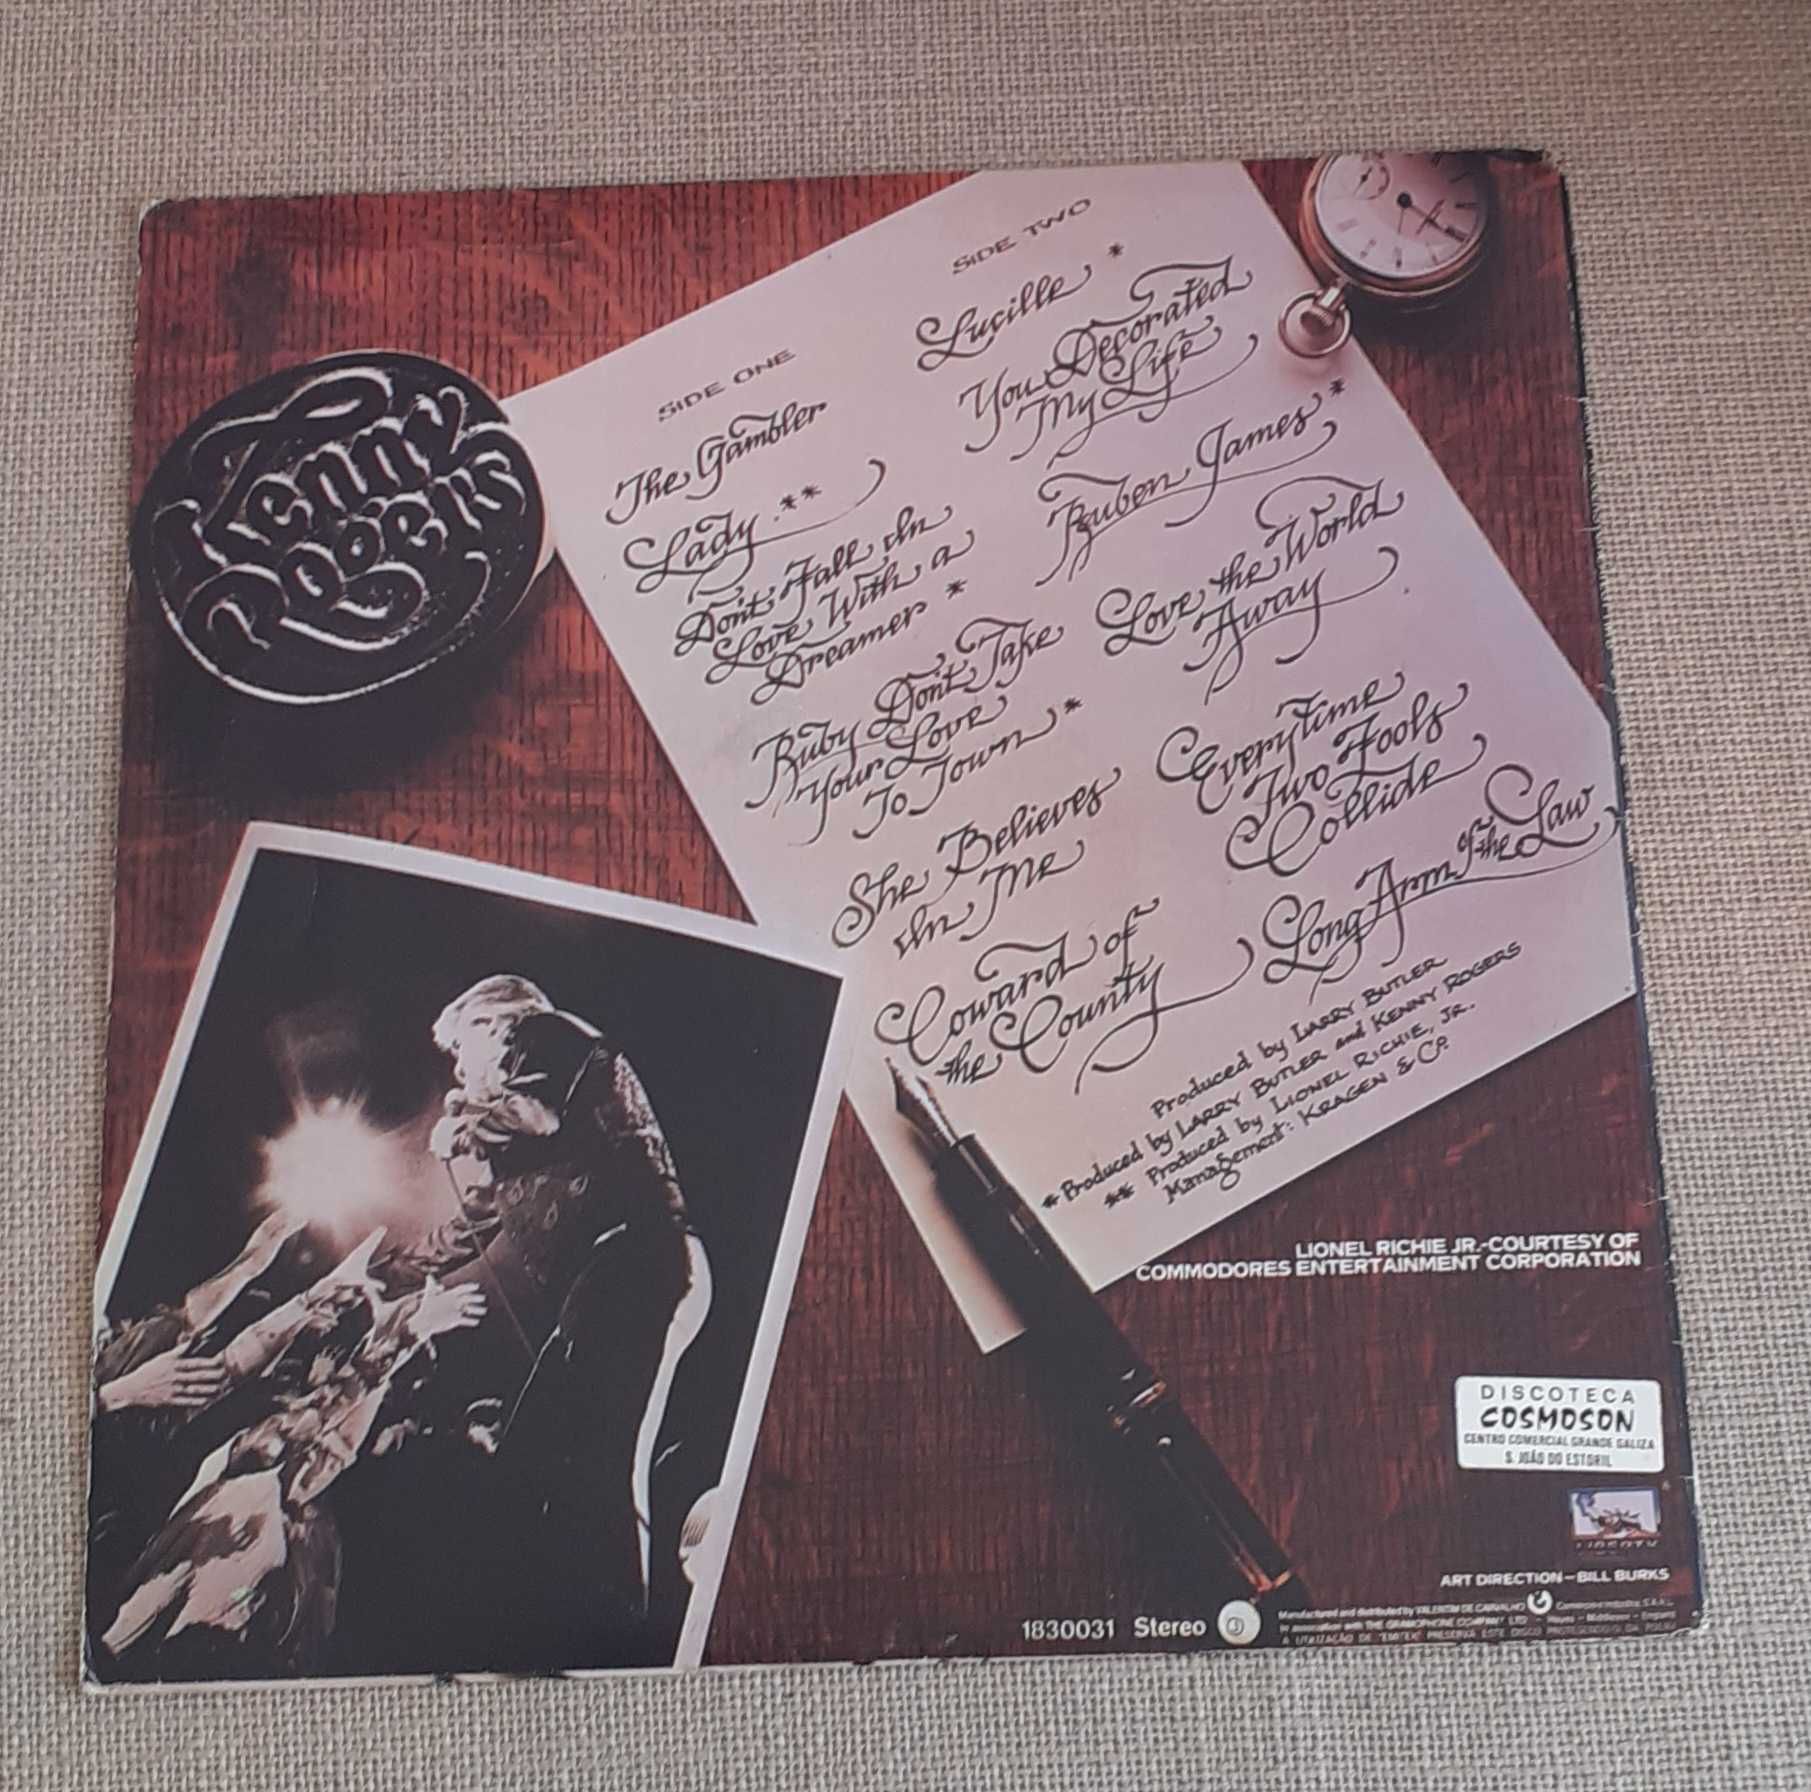 Kenny
Rogers
SIDE ONE
The Gambler
Lady **
Don't Fall In
Love With a
Dreamer *
Ruby Don't Take
Your Love
To Town *
She Believes
In Me
Coward of
the County
SIDE TWO
Lucille *
You Decorated
My Life
Ruben James *
Love the World
Away
Everytime
Two Fools
Collide
Long Arm of the Law
Produced by LARRY BUTLER
* Produced by LARRY BUTLER and KENNY ROGERS
** Produced by LIONEL RICHIE, JR.
Management: KRAGEN & Co.
LIONEL RICHIE JR.-COURTESY OF
COMMODORES ENTERTAINMENT CORPORATION
DISCOTECA
COSMOSON
CENTRO COMERCIAL GRANDE GALIZA
S. JOÃO DO ESTORIL
LIBERTY
ART DIRECTION–BILL BURKS
1830031 Stereo
Manufactured and distributed by VALENTIM DE CARVALHO Comércio e Indústria, S.A.R.L.
In association with THE GRAMOPHONE COMPANY LTD - Hayes - Middlesex - England
A UTILIZAÇÃO DE "EMITEX" PRESERVA ESTE DISCO PROTEGENDO-O DA